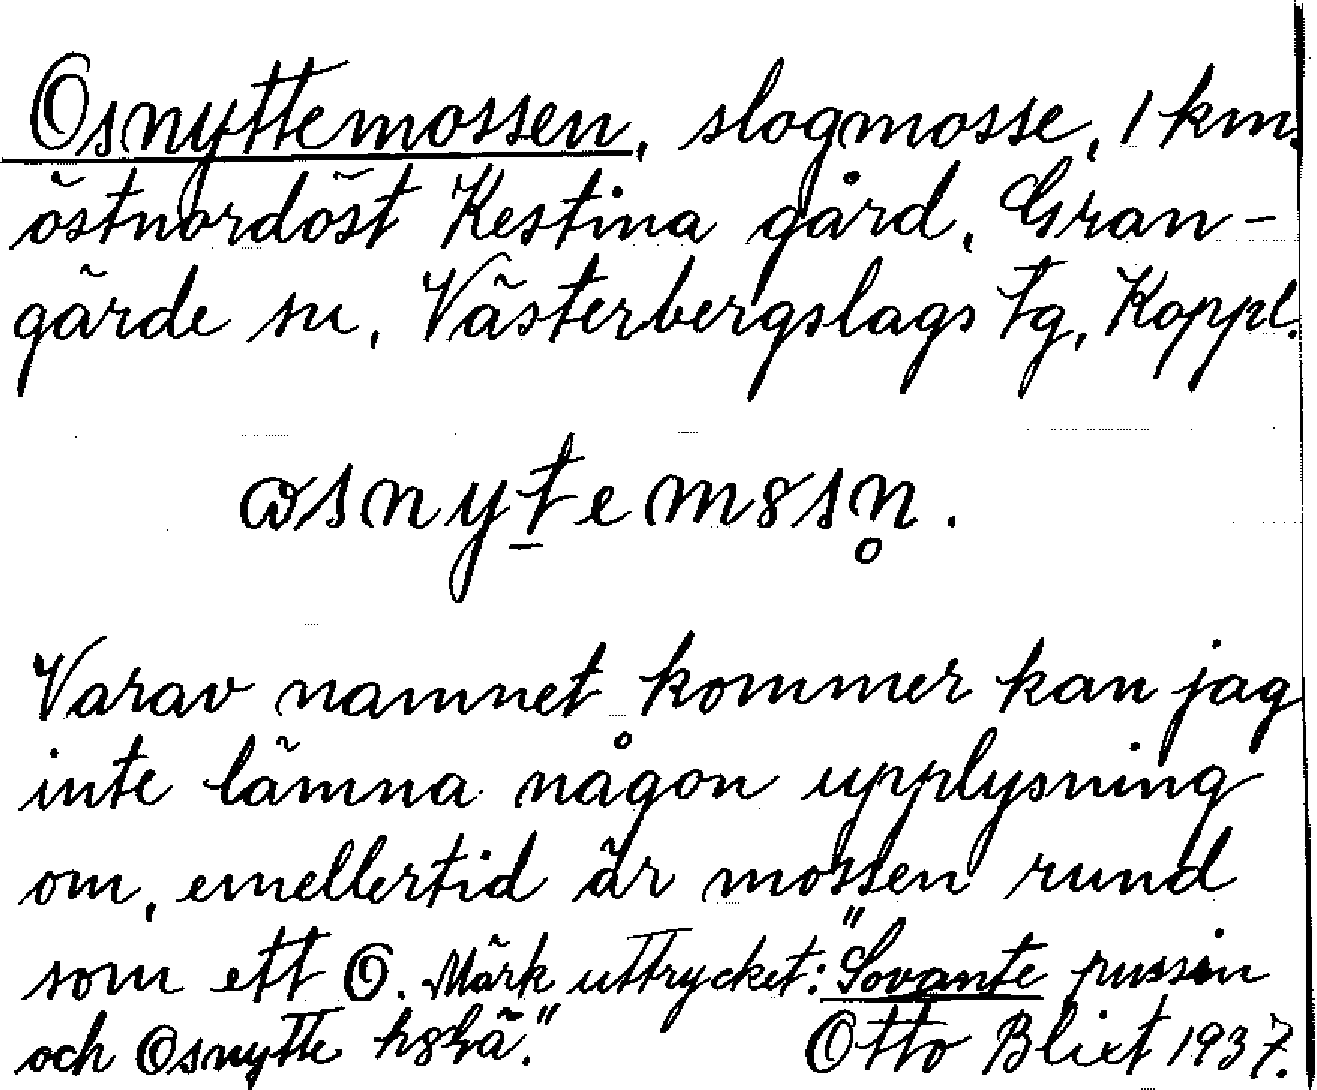 Osnyttemossen, slogmosse, 1 km.
östnordöst Kestina gård, Gran-
gärde sn, Västerbergslags tg, Koppl.
osnytemssn.
Varav namnet kommer kan jag
inte lämna någon upplysning
om, emellertid är mossen rund
som ett O. Märk uttrycket: "Sovante pussin
och Osnytte
Otto Blixt 1937.